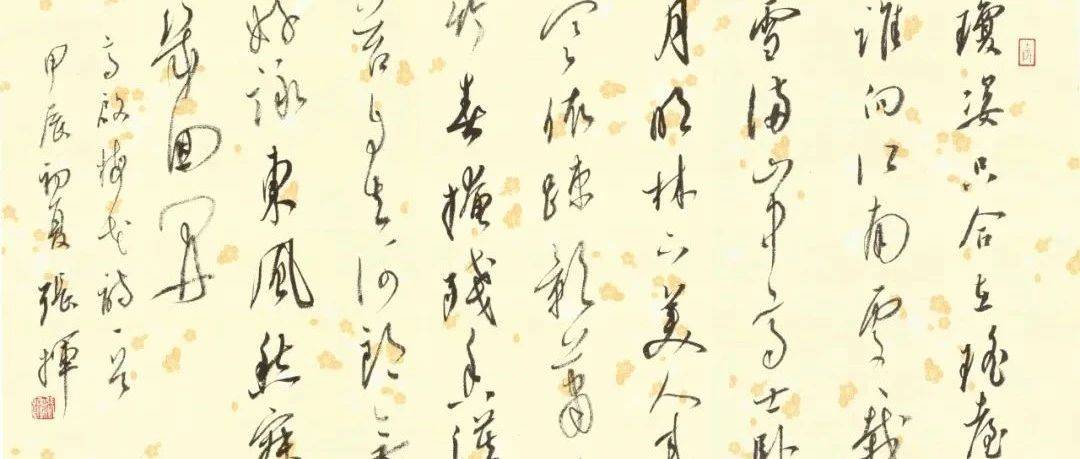 瓊姿只合在瑤臺
誰向江南處處栽
雪滿山中高士卧
月明林下美人来
寒依疎影蕭
竹春掩殘香漠
苔自去何郎無
好詠東風愁寂
幾回開
高啟梅花詩一首
甲辰初夏張揮